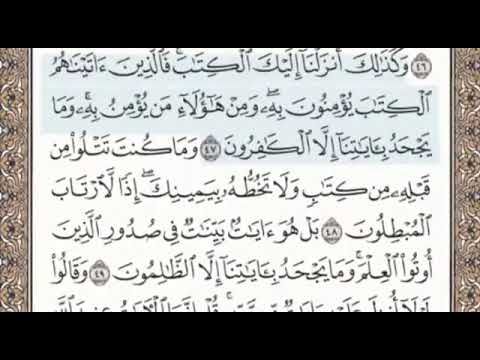 ٤٦ وَكَذَٰلِكَ أَنزَلْنَا إِلَيْكَ الْكِتَابَ ۚ فَالَّذِينَ ءَاتَيْنَاهُمُ
الْكِتَابَ يُؤْمِنُونَ بِهِ ۖ وَمِنْ هَٰؤُلَاءِ مَن يُؤْمِنُ بِهِ ۚ وَمَا
يَجْحَدُ بِـَٔايَاتِنَا إِلَّا الْكَافِرُونَ ٤٧ وَمَا كُنتَ تَتْلُوا مِن
قَبْلِهِ مِن كِتَابٍ وَلَا تَخُطُّهُ بِيَمِينِكَ ۖ إِذًا لَّارْتَابَ
الْمُبْطِلُونَ ٤٨ بَلْ هُوَ ءَايَاتٌ بَيِّنَاتٌ فِي صُدُورِ الَّذِينَ
أُوتُوا الْعِلْمَ ۚ وَمَا يَجْحَدُ بِـَٔايَاتِنَا إِلَّا الظَّالِمُونَ ٤٩ وَقَالُوا